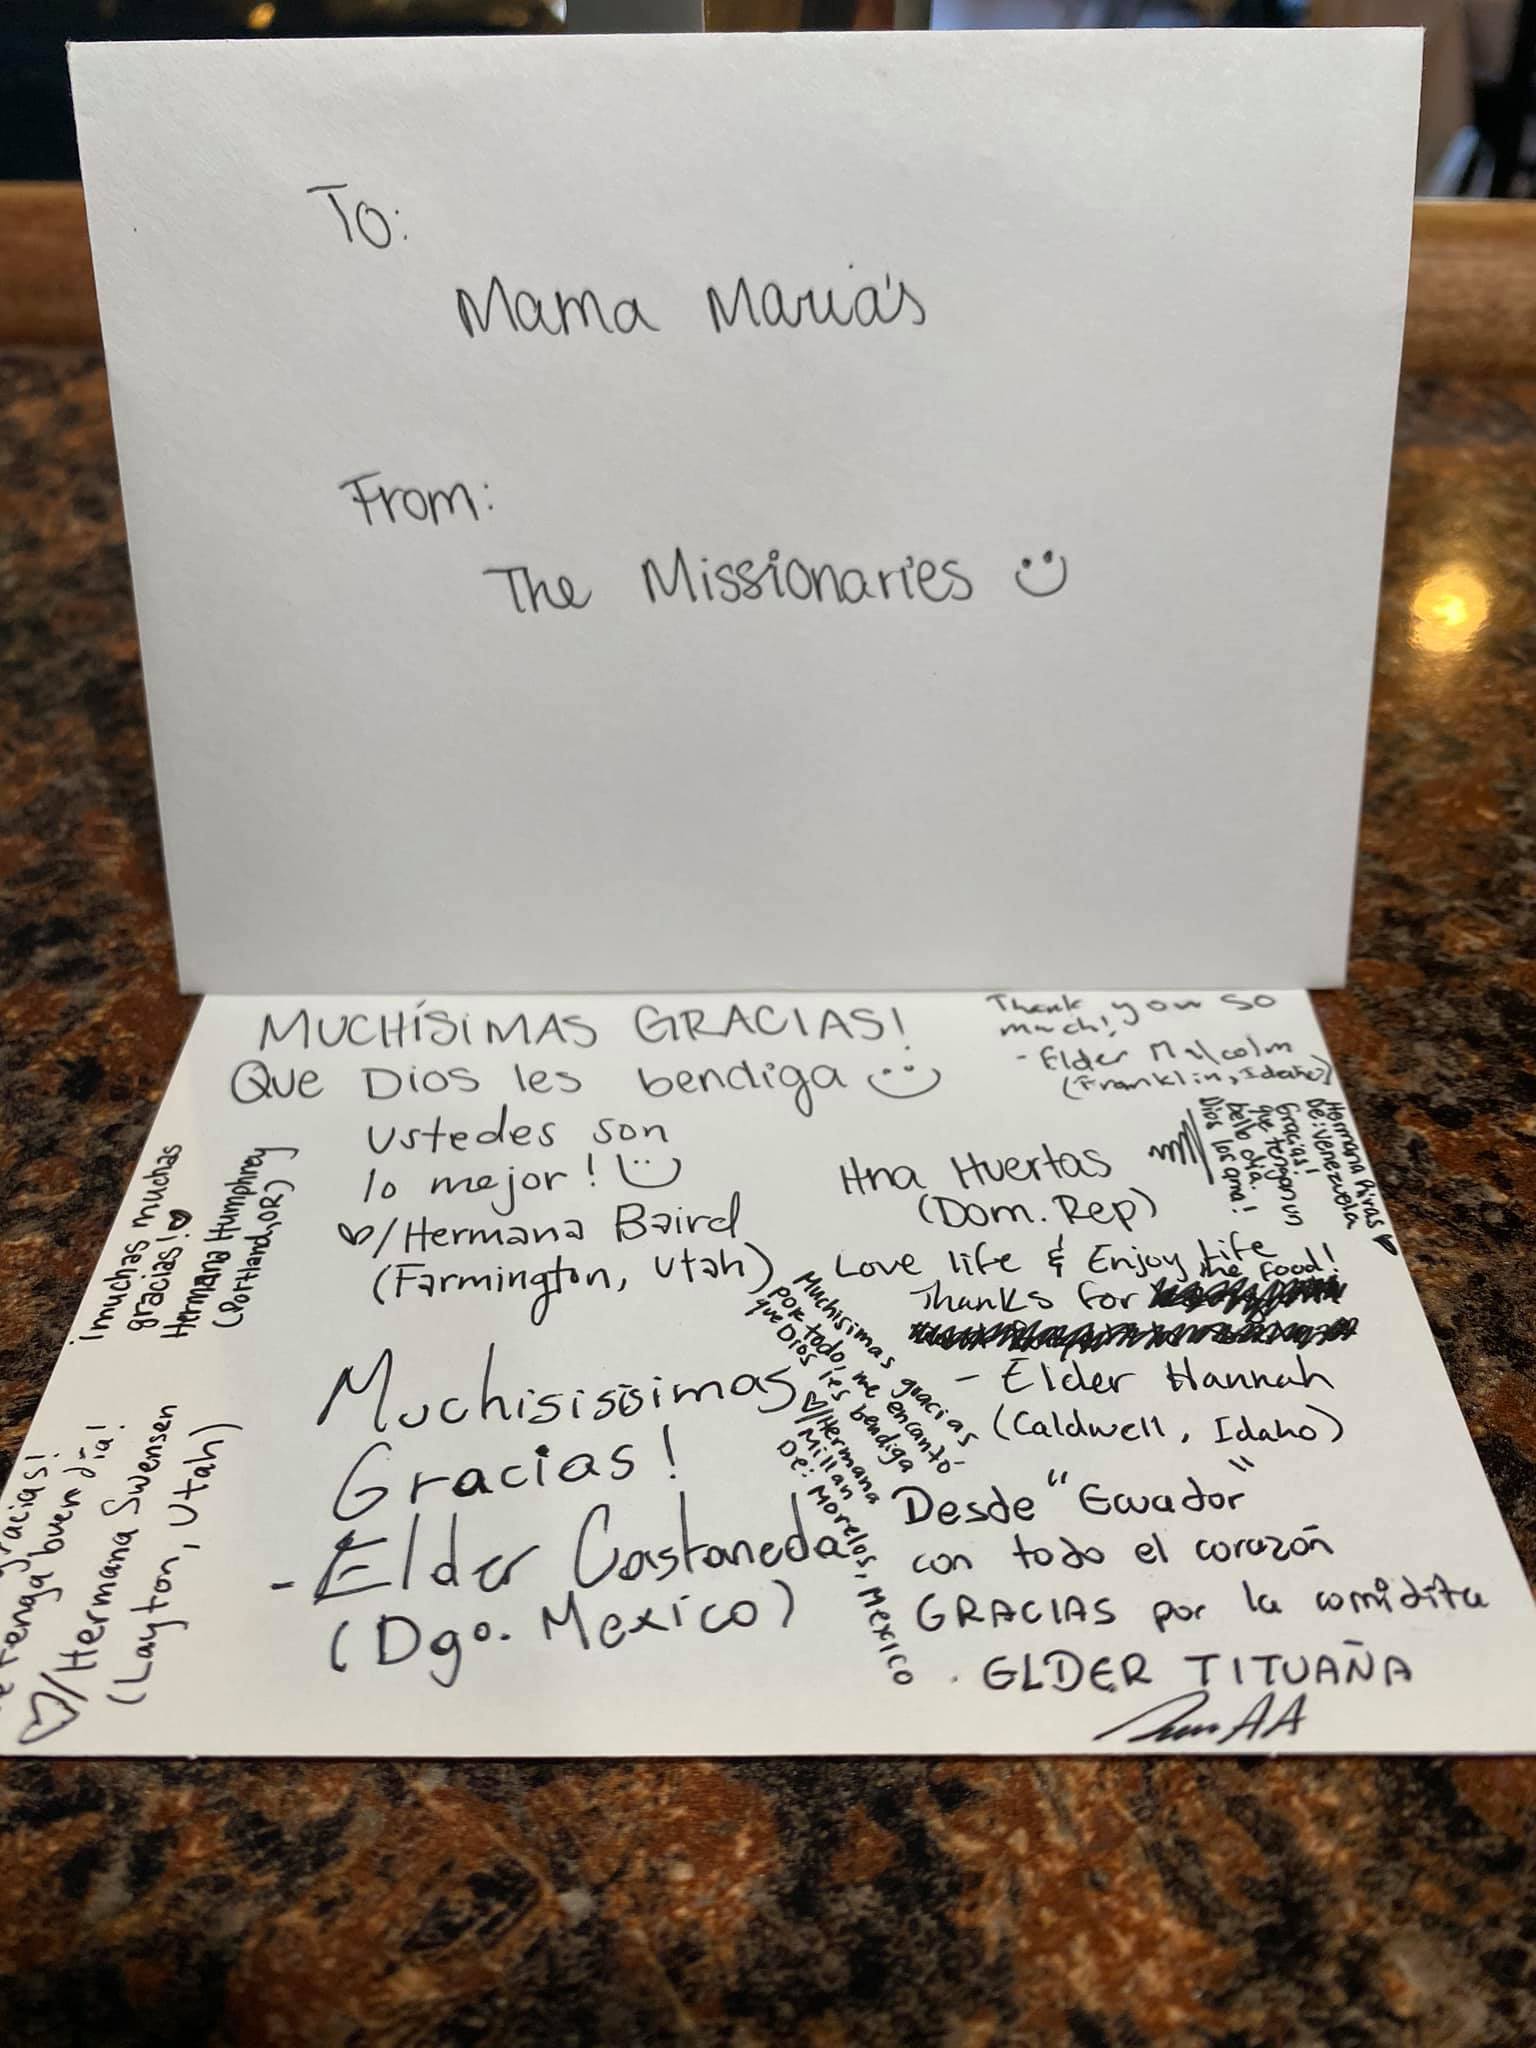 To:
Mama Maria's
From:
The Missionaries
MUCHÍSIMAS GRACIAS!
Que Dios les bendiga
ustedes son
lo mejor!
/Hermana Baird
(Farmington, Utah)
Thank you so
much!
- Elder Malcolm
(Franklin, Idaho)
Hermana Rivas
De: Venezuela
Gracias!
que tengan un
bello dia.
Dios los ama!
Hna Huertas
(Dom. Rep)
Love life & Enjoy life
Thanks for the food!
- Elder Hannah
(Caldwell, Idaho)
¡muchas muchas
gracias!
Hermana Humphrey
(Portland, OR)
Muchisimas gracias
por todo, me encantó
que Dios les bendiga
/Hermana
Millan
De: Morelos, Mexico
Muchisisisimas
Gracias!
- Elder Castaneda
(Dgo. Mexico)
gracias!
tenga buen día!
/Hermana Swensen
(Layton, Utah)
Desde "Ecuador"
con todo el corazón
GRACIAS por la comidita
. ELDER TITUAÑA